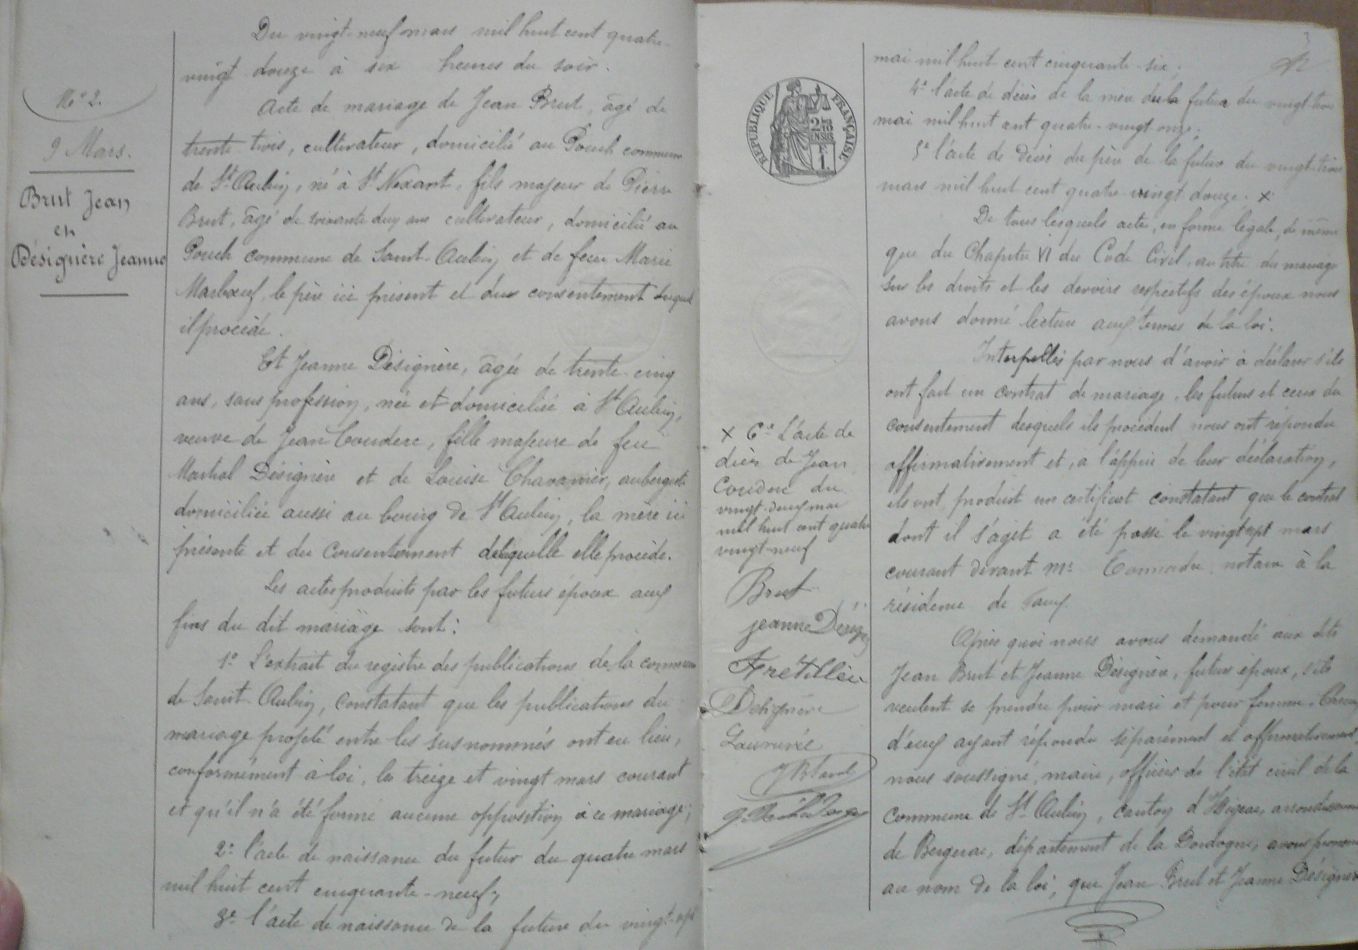 No 2.
9 Mars.
Brut Jean
et
Désignère Jeanne
Du vingt-neuf mars mil huit cent quatre-
vingt douze à six heures du soir.
Acte de mariage de Jean Brut, âgé de
trente trois, cultivateur, domicilié au Pouch commune
de St Aubin, né à St Nexant, fils majeur de Pierre
Brut, âgé de soixante deux ans cultivateur, domicilié au
Pouch commune de Saint-Aubin et de feue Marie
Marboeuf, le père ici présent et du consentement duquel
il procède.
Et Jeanne Désignère, âgée de trente-cinq
ans, sans profession, née et domiciliée à St Aubin,
veuve de Jean Couderc, fille majeure de feu
Martial Désignère et de Louise, aubergiste
domiciliée aussi au bourg de St Aubin, la mère ici
présente et du consentement de laquelle elle procède.
Les actes produits par les futurs époux aux
fins du dit mariage sont:
1o L'extrait du registre des publications de la commune
de Saint-Aubin, constatant que les publications du
mariage projeté entre les susnommés ont eu lieu,
conformément à loi, les treize et vingt mars courant
et qu'il n'a été formé aucune opposition à ce mariage;
2o l'acte de naissance du futur du quatre mars
mil huit cent cinquante-neuf;
3o l'acte de naissance de la future du vingt-sept
RÉPUBLIQUE FRANÇAISE
mai mil huit cent cinquante-six;
4o l'acte de décès de la mère de la future du vingt trois
mai mil huit cent quatre-vingt onze;
5o l'acte de décès du père de la future du vingt-trois
mars mil huit cent quatre vingt douze. x
De tous lesquels acte, en forme légale, de même
que du Chapitre VI du Code Civil, au titre du mariage
sur les droits et les devoirs respectifs des époux nous
avons donné lecture aux termes de la loi.
Interpellés par nous d'avoir à déclarer s'ils
ont fait un contrat de mariage, les futurs et ceux du
consentement desquels ils procèdent nous ont répondu
affirmativement et, à l'appui de leur déclaration,
ils ont produit un certificat constatant que le contrat
dont il s'agit a été passé le vingt sept mars
courant devant Me notaire à la
résidence de Faux
Après quoi nous avons demandé aux dits
Jean Brut et Jeanne Désignère, futurs époux, s'ils
veulent se prendre pour mari et pour femme. Chacun
d'eux ayant répondu séparément et affirmativement,
nous soussigné, maire, officier de l'état civil de la
commune de St Aubin, canton d'Issigeac, arrondissement
de Bergerac, département de la Dordogne, avons prononcé
au nom de la loi, que Jean Brut et Jeanne Désignère
x 6o L'acte de
décès de Jean
Couderc du
vingt-deux mai
mil huit cent quatre
vingt-neuf
Brut
jeanne Désign
Désignère